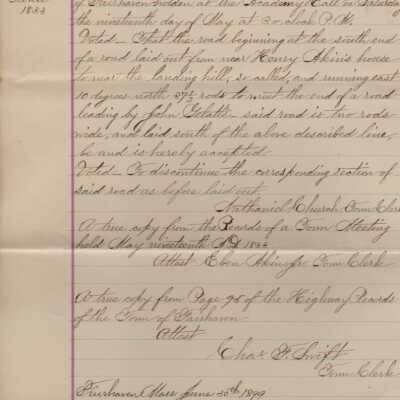 1833
of Fairhaven holden at the Academy Hall on Saturday
the nineteenth day of May at 2 o'clock P.M.
Voted – That the road beginning at the south end
of a road laid out from near Henry Akin's house
to near the landing hill, so called, and running east
10 degrees north 27½ rods to meet the end of a road
leading by John – said road is two rods
wide, and laid south of the above described line,
be and is hereby accepted.
Voted – To discontinue the corresponding section of
said road as before laid out.
Nathaniel Church Town Clerk
A true copy from the Records of a Town Meeting
held May nineteenth A.D. 1833
Attest Eben Akin Jr Town Clerk
A true copy from Page 95 of the Highway Records
of the Town of Fairhaven
Attest
Chas F. Swift
Town Clerk
Fairhaven Mass June 30th 1899